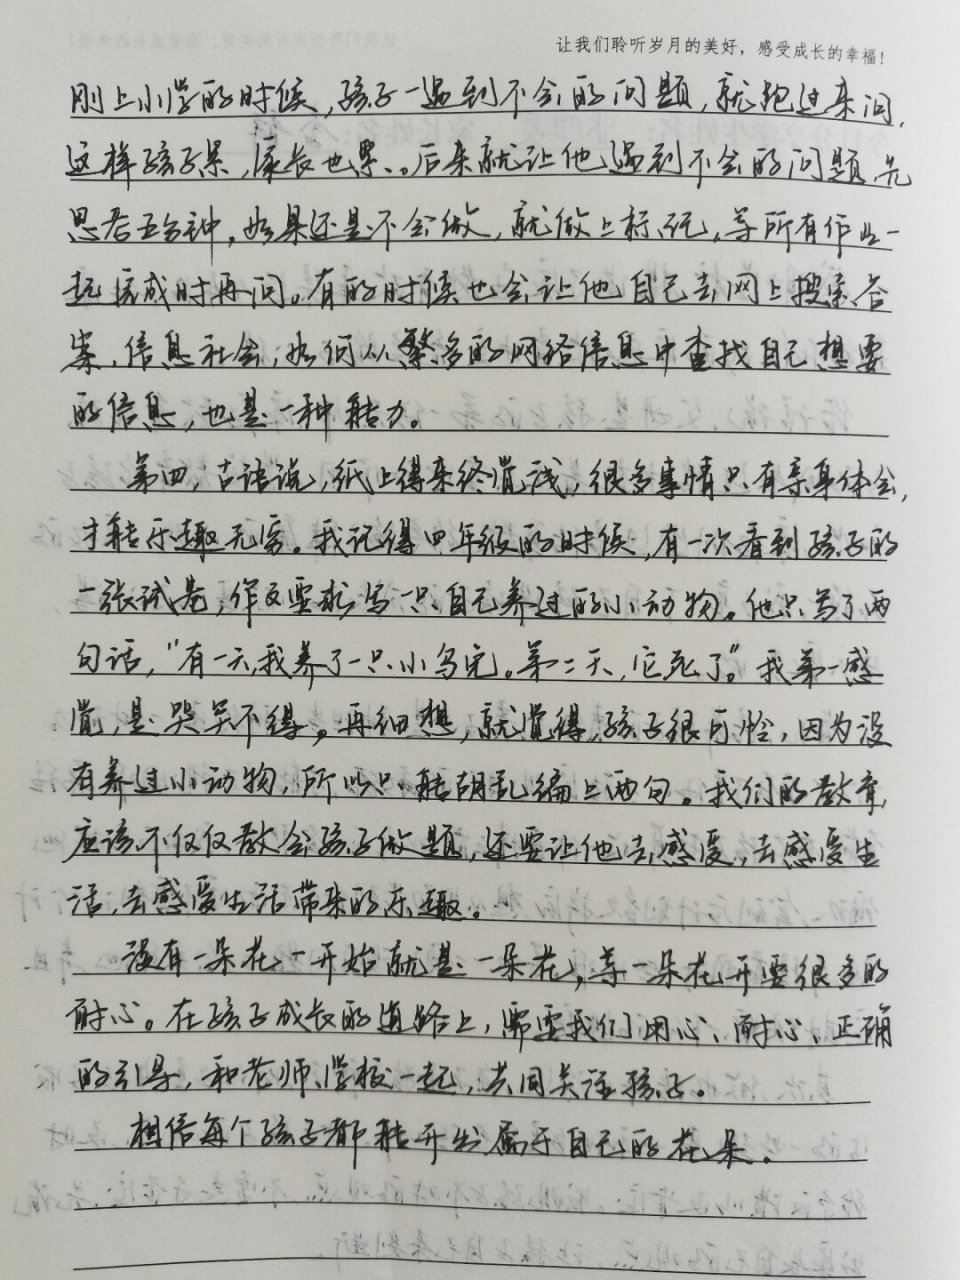 让我们聆听岁月的美好，感受成长的幸福！
刚上小学的时候，孩子一遇到不会的问题，就跑过来问，
这样孩子累，家长也累。后来就让他遇到不会的问题先
思考五分钟，如果还是不会做，就做上标记，等所有作业一
起完成时再问。有的时候也会让他自己去网上搜索答
案，信息社会，如何从繁多的网络信息中查找自己想要
的信息，也是一种能力。
第四，古语说，纸上得来终觉浅，很多事情只有亲身体会，
才能乐趣无穷。我记得四年级的时候，有一次看到孩子的
一张试卷，作文要求写一只自己养过的小动物。他只写了两
句话，"有一天，我养了一只小乌龟。第二天，它死了。"我第一感
觉，是哭笑不得。再细想，就觉得，孩子很可怜，因为没
有养过小动物，所以只能胡乱编上两句。我们的教育，
应该不仅仅教会孩子做题，还要让他去感受，去感受生
活，去感受生活带来的乐趣。
没有一朵花一开始就是一朵花，等一朵花开要很多的
耐心。在孩子成长的道路上，需要我们用心、耐心、正确
的引导，和老师、学校一起，共同关注孩子。
相信每个孩子都能开出属于自己的花朵。